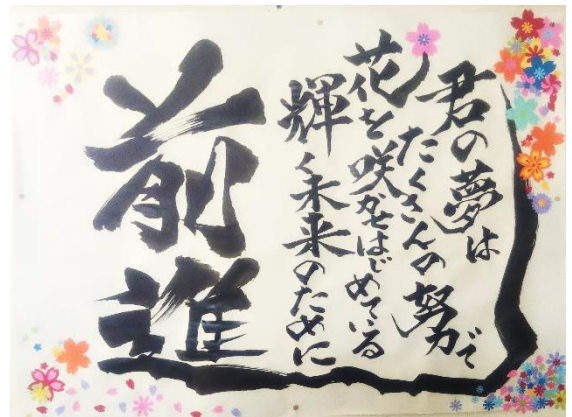 君の夢は
たくさんの努力で
花を咲かせはじめている
輝く未来のために
前進